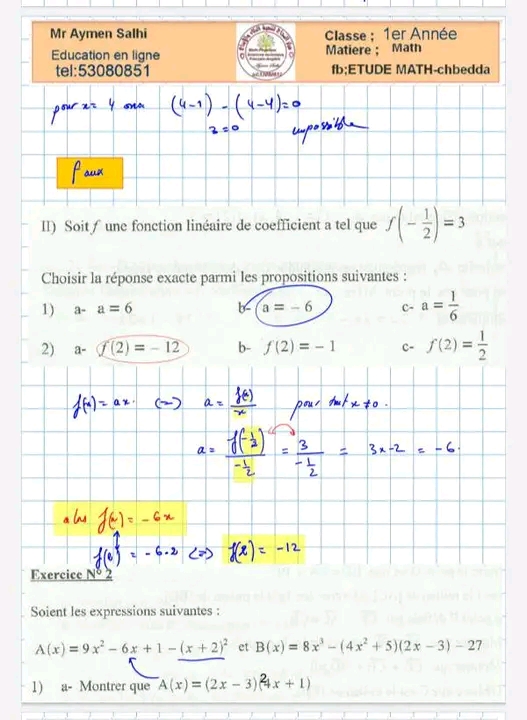 Mr Aymen Salhi
Education en ligne
tel:53080851
Classe ; 1er Année
Matiere ; Math
fb;ETUDE MATH-chbedda
pour x= 4 on a (4-1) - (4-4)=0
3=0 impossible
faux
II) Soit f une fonction linéaire de coefficient a tel que f(-1/2) = 3
Choisir la réponse exacte parmi les propositions suivantes :
1) a- a = 6 b- a = - 6 c- a = 1/6
2) a- f(2) = - 12 b- f(2) = - 1 c- f(2) = 1/2
f(x) = ax. <=> a = f(x)/x pour tout x ≠ 0.
a = f(-1/2)/(-1/2) = 3/(-1/2) = 3x-2 = -6.
alors f(x) = -6x
f(2) = -6.2 <=> f(2) = -12
Exercice N° 2
Soient les expressions suivantes :
A(x) = 9x² - 6x + 1 - (x + 2)² et B(x) = 8x³ - (4x² + 5)(2x - 3) - 27
1) a- Montrer que A(x) = (2x - 3)(4x + 1)
2